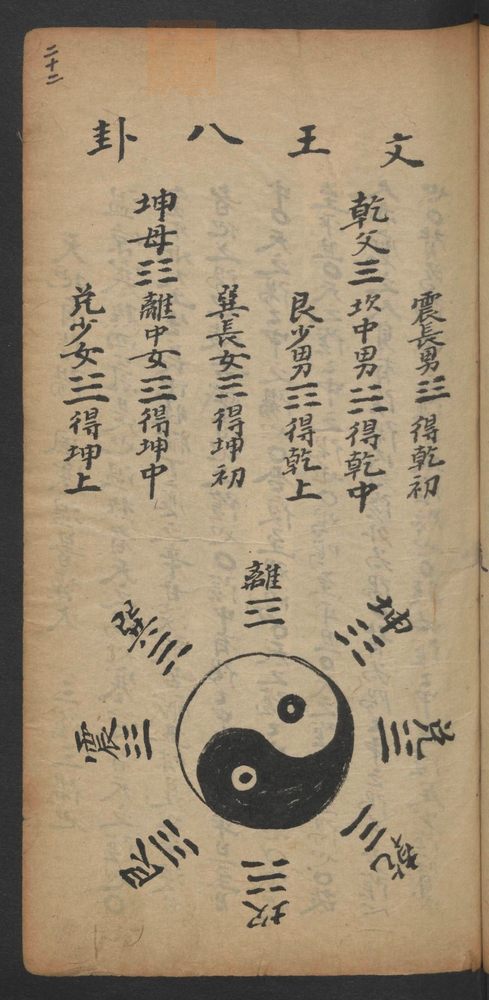 二十二
文王八卦
震長男☳得乾初
乾父☰坎中男☵得乾中
艮少男☶得乾上
巽長女☴得坤初
坤母☷離中女☲得坤中
兑少女☱得坤上
離
坤
兑
乾
坎
艮
震
巽